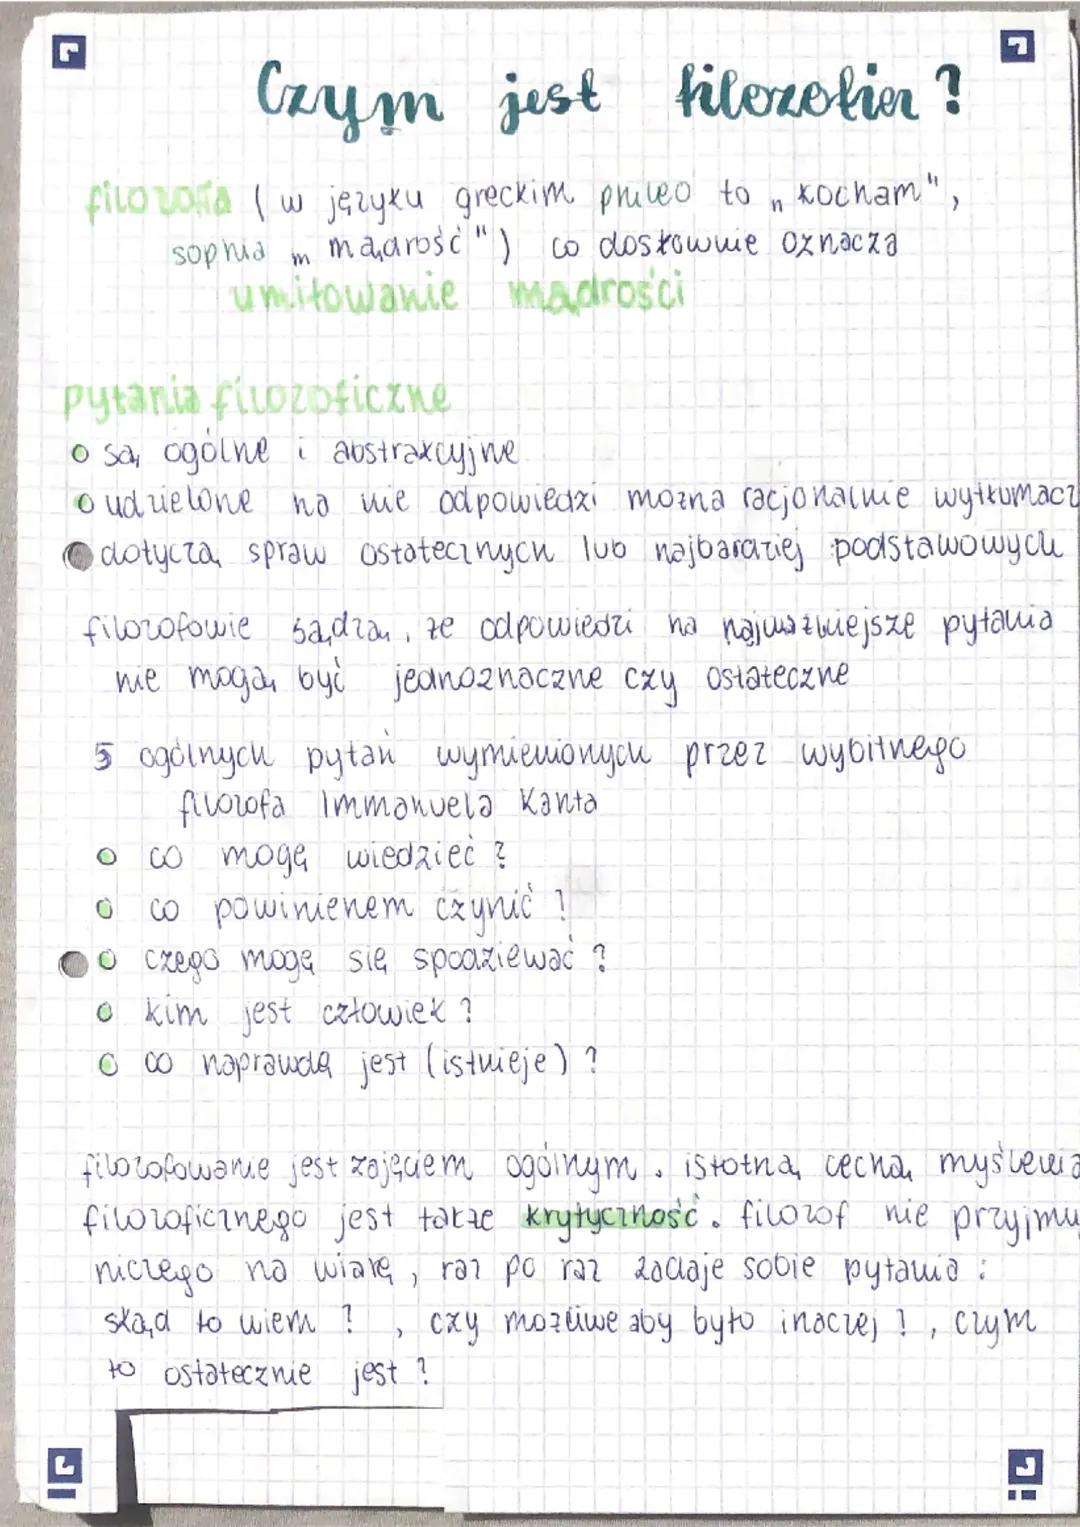 Czym jest filozofia?
filozofia (w języku greckim phileo to „kocham",
sophia „mądrość") co dosłownie oznacza
umiłowanie mądrości
pytania filozoficzne
są ogólne i abstrakcyjne
udzielone na nie odpowiedzi można racjonalnie wytłumacz
dotyczą spraw ostatecznych lub najbardziej podstawowych
filozofowie sądzą, że odpowiedzi na najważniejsze pytania
nie mogą być jednoznaczne czy ostateczne
5 ogólnych pytań wymienionych przez wybitnego
filozofa Immanuela Kanta
co mogę wiedzieć?
co powinienem czynić?
czego mogę się spodziewać?
kim jest człowiek?
co naprawdę jest (istnieje)?
filozofowanie jest zajęciem ogólnym. istotną cechą myślenia
filozoficznego jest także krytyczność. filozof nie przyjmu
niczego na wiarę, raz po raz zadaje sobie pytania:
skąd to wiem?, czy możliwe aby było inaczej?, czym
to ostatecznie jest?